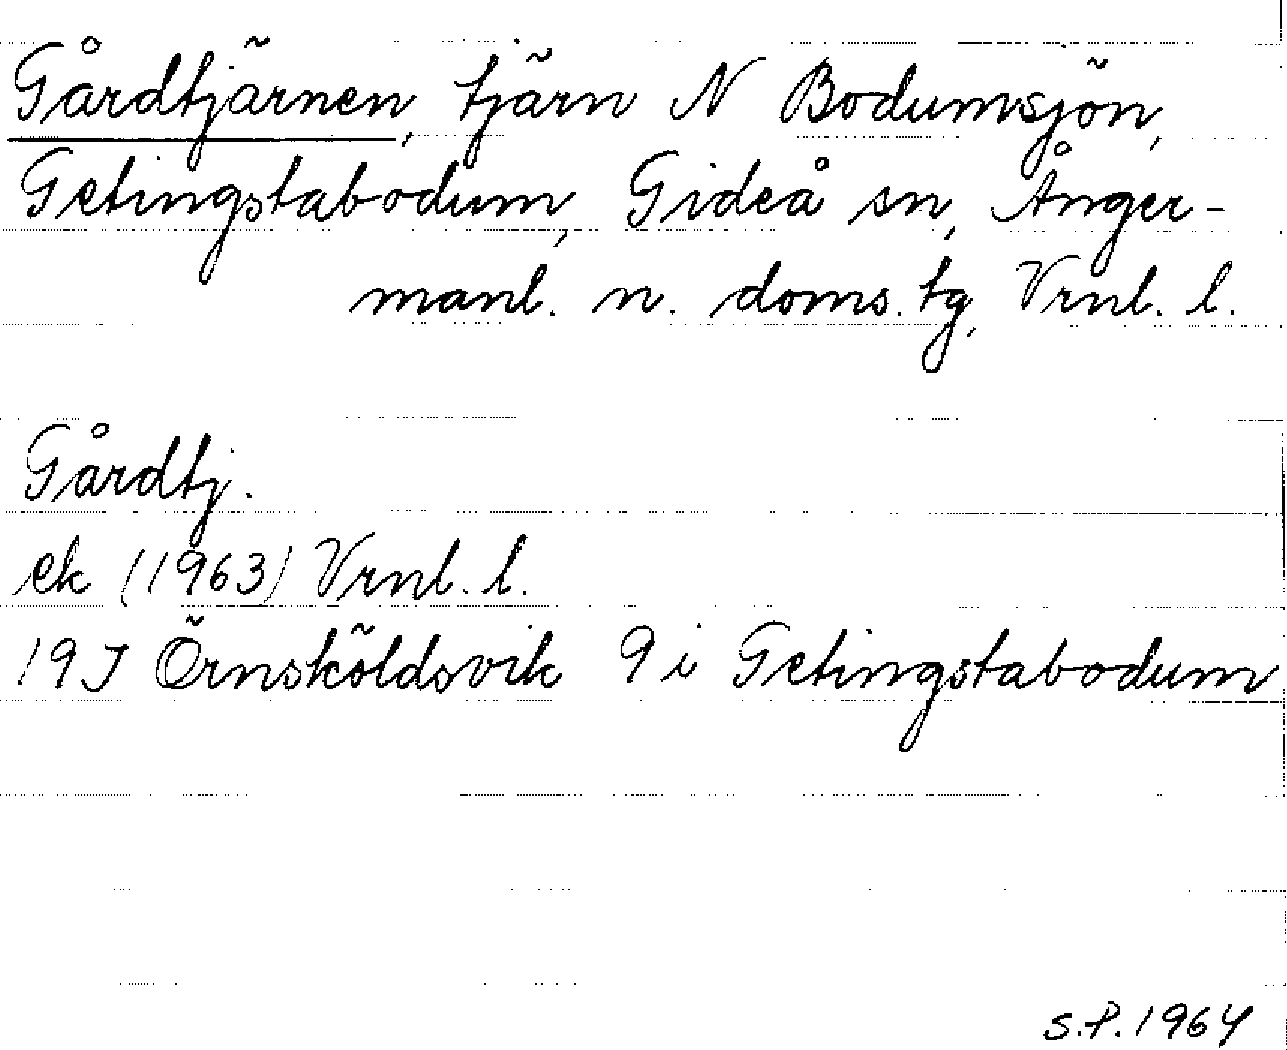 Gårdtjärnen, tjärn N Bodumsjön,
Getingstabodum, Gideå sn, Ånger-
manl. n. doms. tg, Vrnl. l.
Gårdtj.
ek (1963) Vrnl. l.
19J Örnsköldsvik 9i Getingstabodum
S.P. 1964